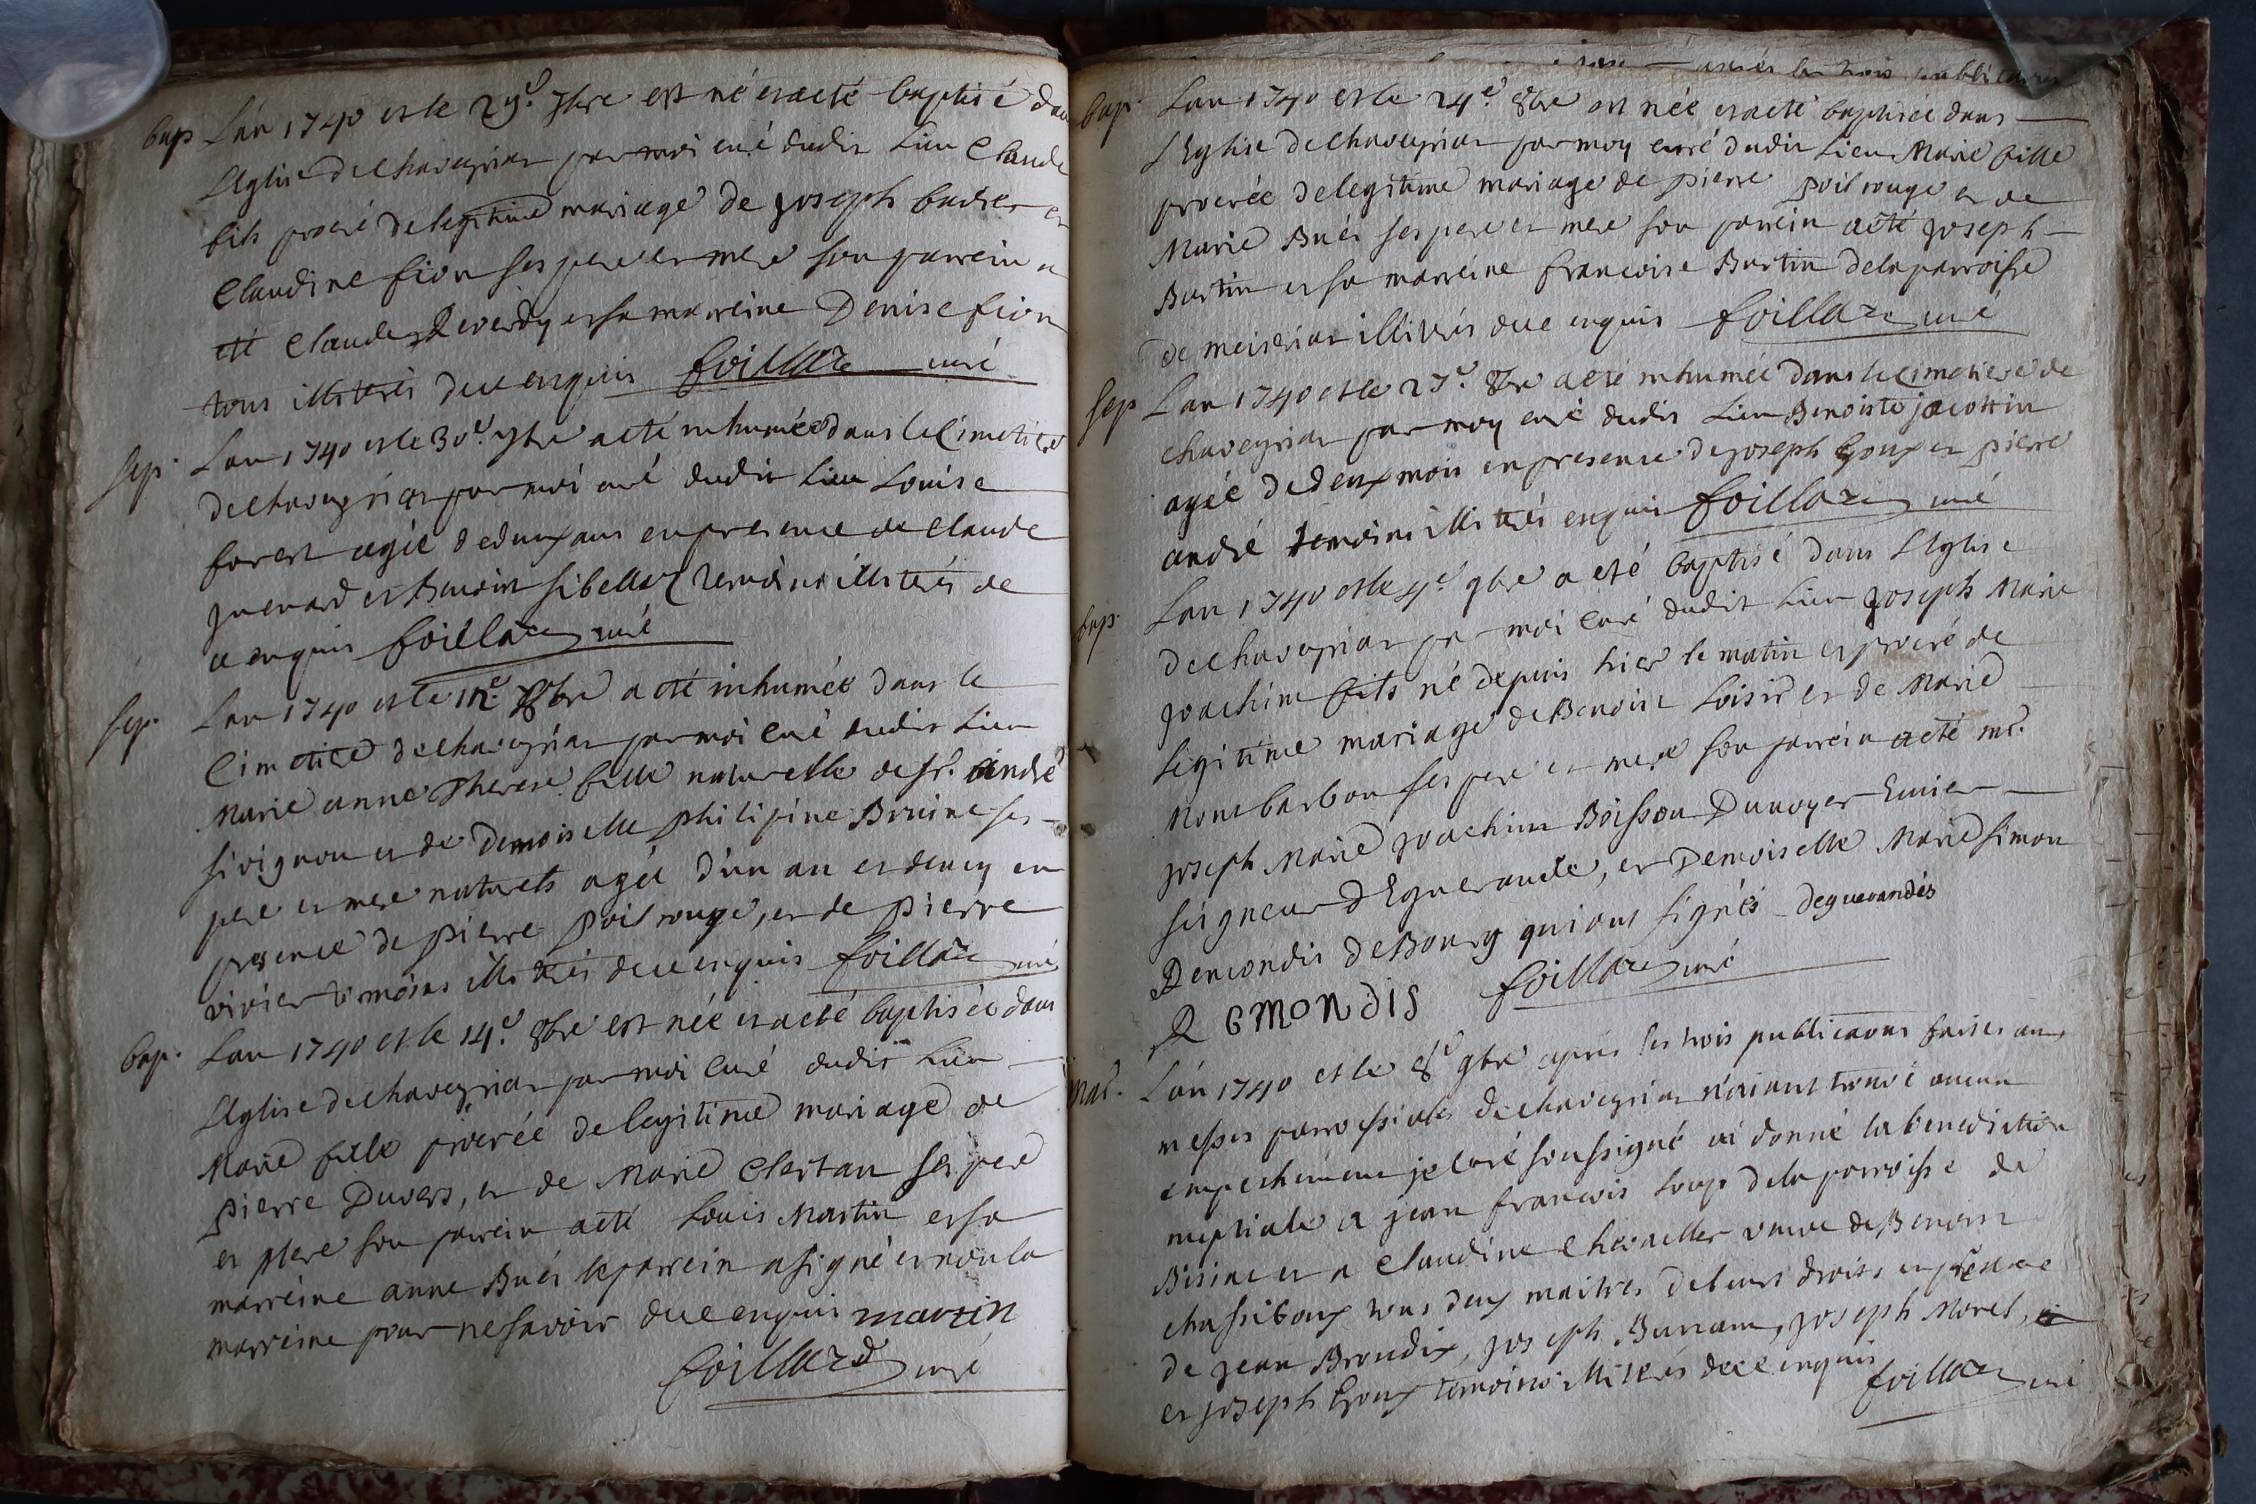 bap L'an 1740 et le 29e. 7bre est né et a eté baptisé dans
L'Eglise de chaveyriat par moi curé dudit Lieu Claude
fils procreé de legitime mariage de joseph badier et
Claudine fion ses pere et mere son parrein a
eté Claude Reverdy et sa marreine Denise fion
tous illitterés de ce enquis foillard curé
sep. L'an 1740 et le 30e. 7bre a eté inhumée dans le Cimetiere
de chaveyriat par moi curé dudit Lieu Louise
forest agée de deux ans en presence de Claude
juenard et Benoist sibellas temoins illiterés de
ce enquis foillard curé
sep. L'an 1740 et le 12e. 8bre a eté inhumée dans le
Cimetiere de chaveyriat par moi curé dudit Lieu
Marie anne Therese fille naturelle de sr. andré
sivignon et de Demoiselle philipine Bruine ses
pere et mere naturels agée d'un an et demy en
presence de pierre poil rouge, et de pierre
vivier temoins illiterés de ce enquis foillard curé
bap. L'an 1740 et le 14e. 8bre est née et a eté baptisée dans
L'Eglise de chaveyriat par moi curé dudit Lieu
Marie fille procreée de legitime mariage de
pierre Duvers, et de Marie Chertan ses pere
et Mere son parrein a eté Louis Martin et sa
marreine anne Buéi le parrein a signé et non la
marreine pour ne savoir de ce enquis martin
foillard curé
après les trois publications
bap. L'an 1740 et le 24e. 8bre est née et a eté baptisée dans
L'Eglise de chaveyriat par moy curé dudit Lieu Marie fille
procreée de legitime mariage de pierre poil rouge et de
Marie Buéi ses pere et mere son parrein a eté joseph
Burtin et sa marreine francoise Burtin de la parroisse
de meiseriat illitérés de ce enquis foillard curé
sep L'an 1740 et le 27e. 8bre a eté inhumée dans le Cimetiere de
chaveyriat par moy curé dudit Lieu Benoiste jacottin
agée de deux mois en presence de joseph Goux et pierre
andré temoins illiterés enquis foillard curé
bap. L'an 1740 et le 4e. 9bre a eté baptisé dans L'Eglise
de chaveyriat par moi Curé dudit Lieu joseph Marie
joachim fils né depuis hier le matin et procreé de
legitime mariage de Benoist Loisir et de Marie
Montbarbon ses pere et mere son parrein a eté mr.
joseph Marie joachim Boisson Dunoyer Ecuier
seigneur d'Eguerande, et Demoiselle Marie Simon
Demondis de Bourg qui ont signés Deguerandes
DEMONDIS foillard curé
Mar. L'an 1740 et le 8e 9bre après les trois publications faites aux
messes parroissiales de chaveyriat n'aiant trouvé aucun
empechement je curé soussigné ai donné la benediction
nuptiale a jean francois Loup de la parroisse de
Bisiat et a Claudine Chevallier veuve de Benoist
chassiboux tous deux maitres de leurs droits en presence
de jean Broudix, joseph Burram, joseph Morel,
et joseph Goux temoins illitérés de ce enquis foillard curé